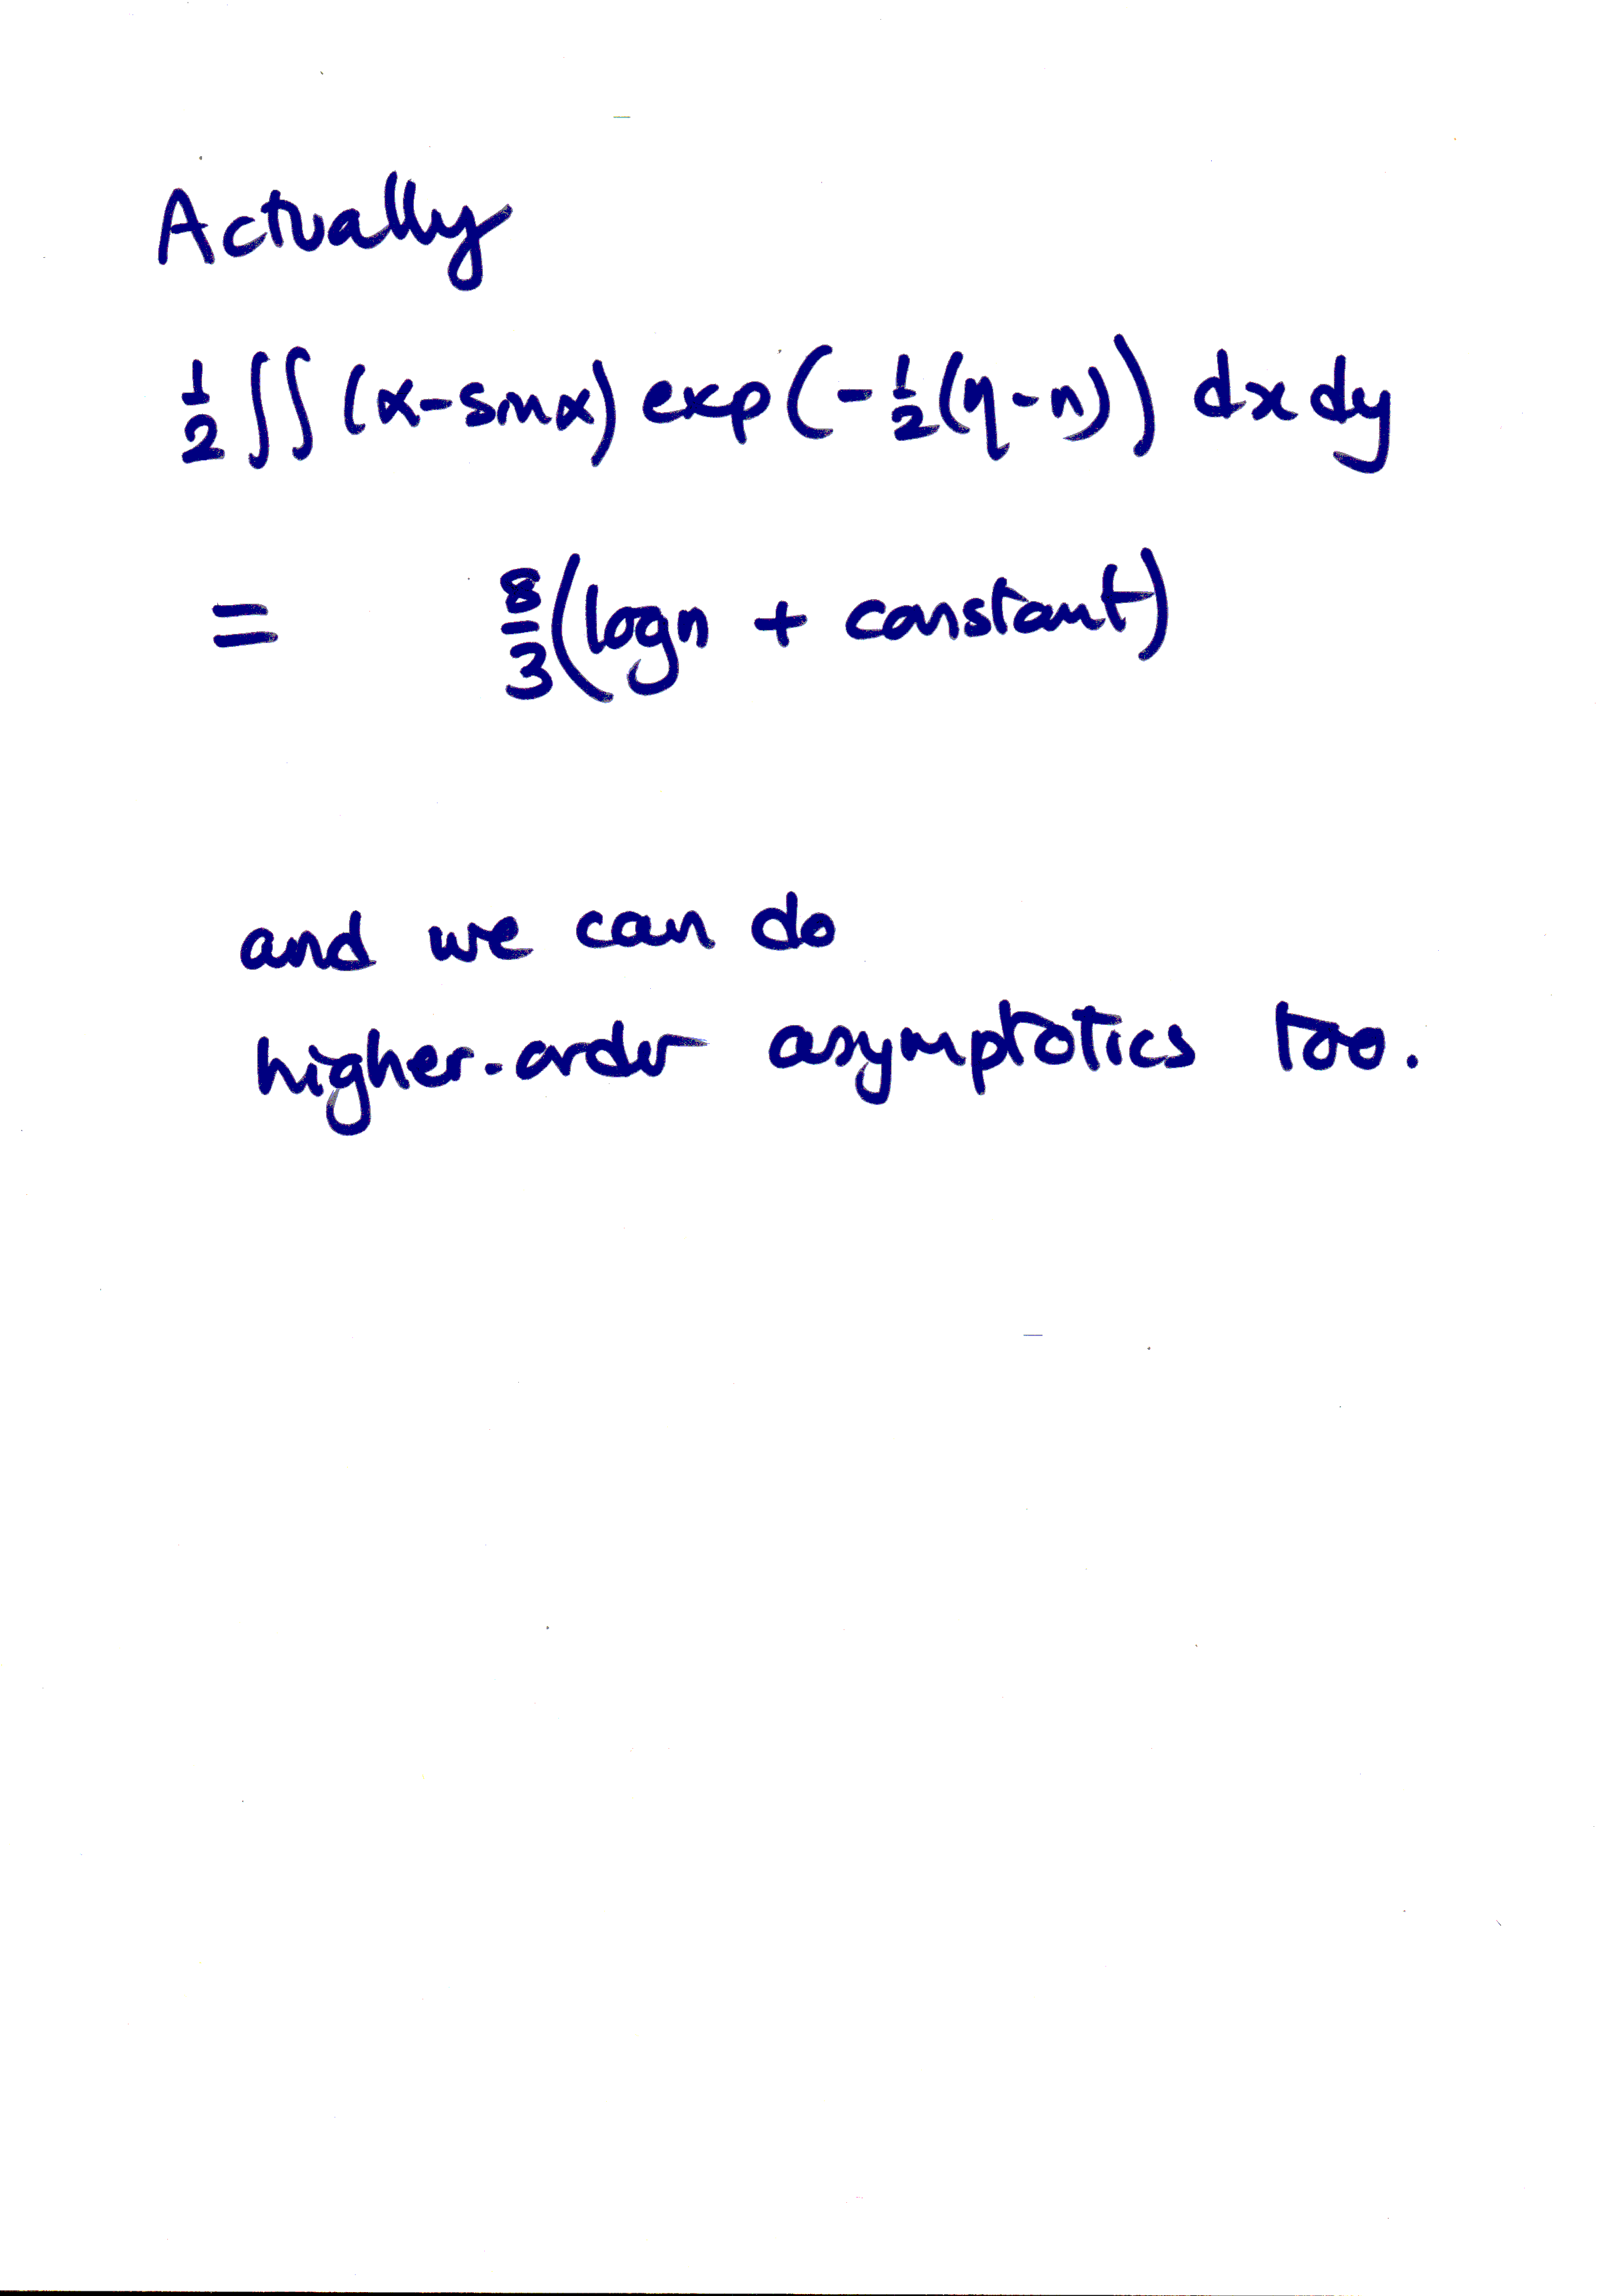 Actually
½ ∫∫ (α - sin α) exp(-½(η - n)) dx dy
= 8/3 (log n + constant)
and we can do
higher-order asymptotics too.